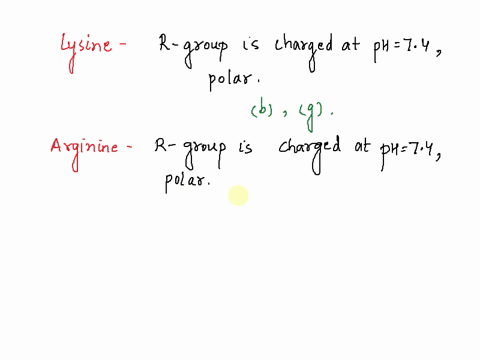 Lysine - R-group is charged at pH=7.4,
polar.
(b), (g).
Arginine - R-group is charged at pH=7.4,
polar.